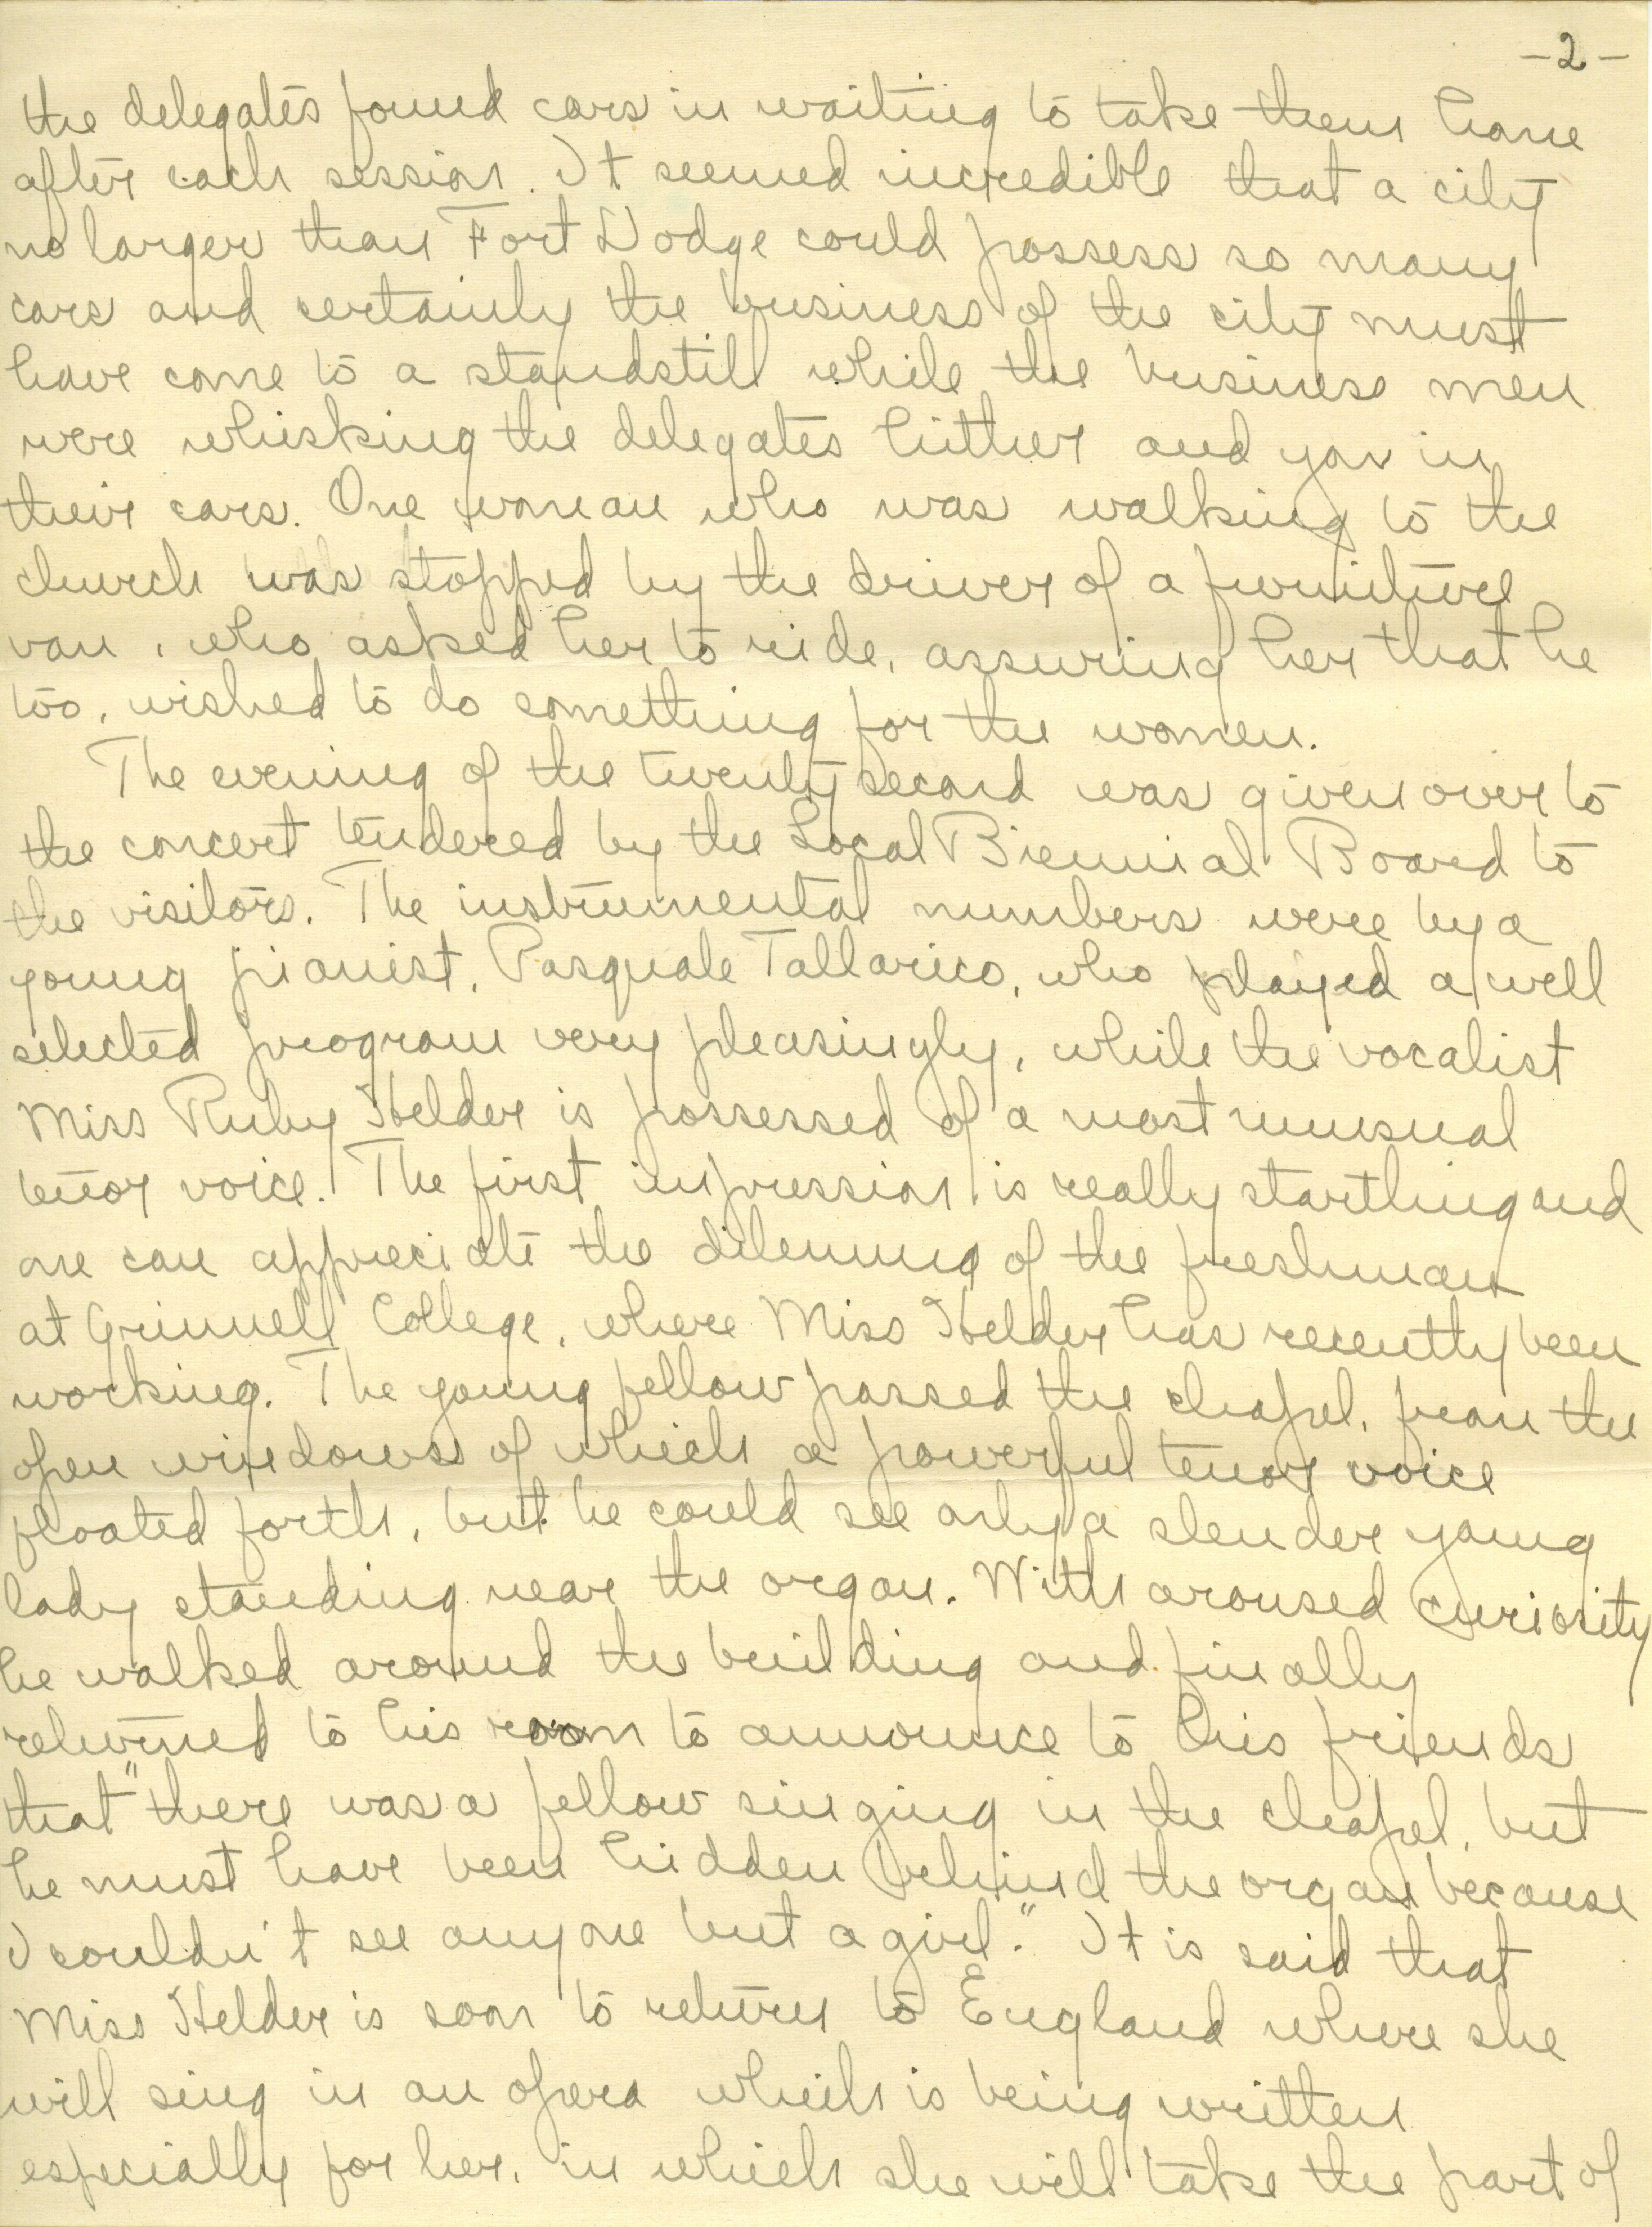 -2-
the delegates found cars in waiting to take them home
after each session. It seemed incredible that a city
no larger than Fort Dodge could possess so many
cars and certainly the business of the city must
have come to a standstill while the business men
were whisking the delegates hither and yon in
their cars. One woman who was walking to the
church was stopped by the driver of a furniture
van, who asked her to ride, assuring her that he
too, wished to do something for the women.
The evening of the twenty second was given over to
the concert tendered by the Local Biennial Board to
the visitors. The instrumental numbers were by a
young pianist, Pasquale Tallarico, who played a well
selected program very pleasingly, while the vocalist
Miss Ruby Helder is possessed of a most unusual
tenor voice. The first impression is really startling and
one can appreciate the dilemma of the freshman
at Grinnell College, where Miss Helder has recently been
working. The young fellow passed the chapel, from the
open windows of which a powerful tenor voice
floated forth, but he could see only a slender young
lady standing near the organ. With aroused curiosity
he walked around the building and finally
returned to his room to announce to his friends
that "there was a fellow singing in the chapel, but
he must have been hidden behind the organ because
I couldn't see anyone but a girl." It is said that
Miss Helder is soon to return to England where she
will sing in an opera which is being written
especially for her, in which she will take the part of